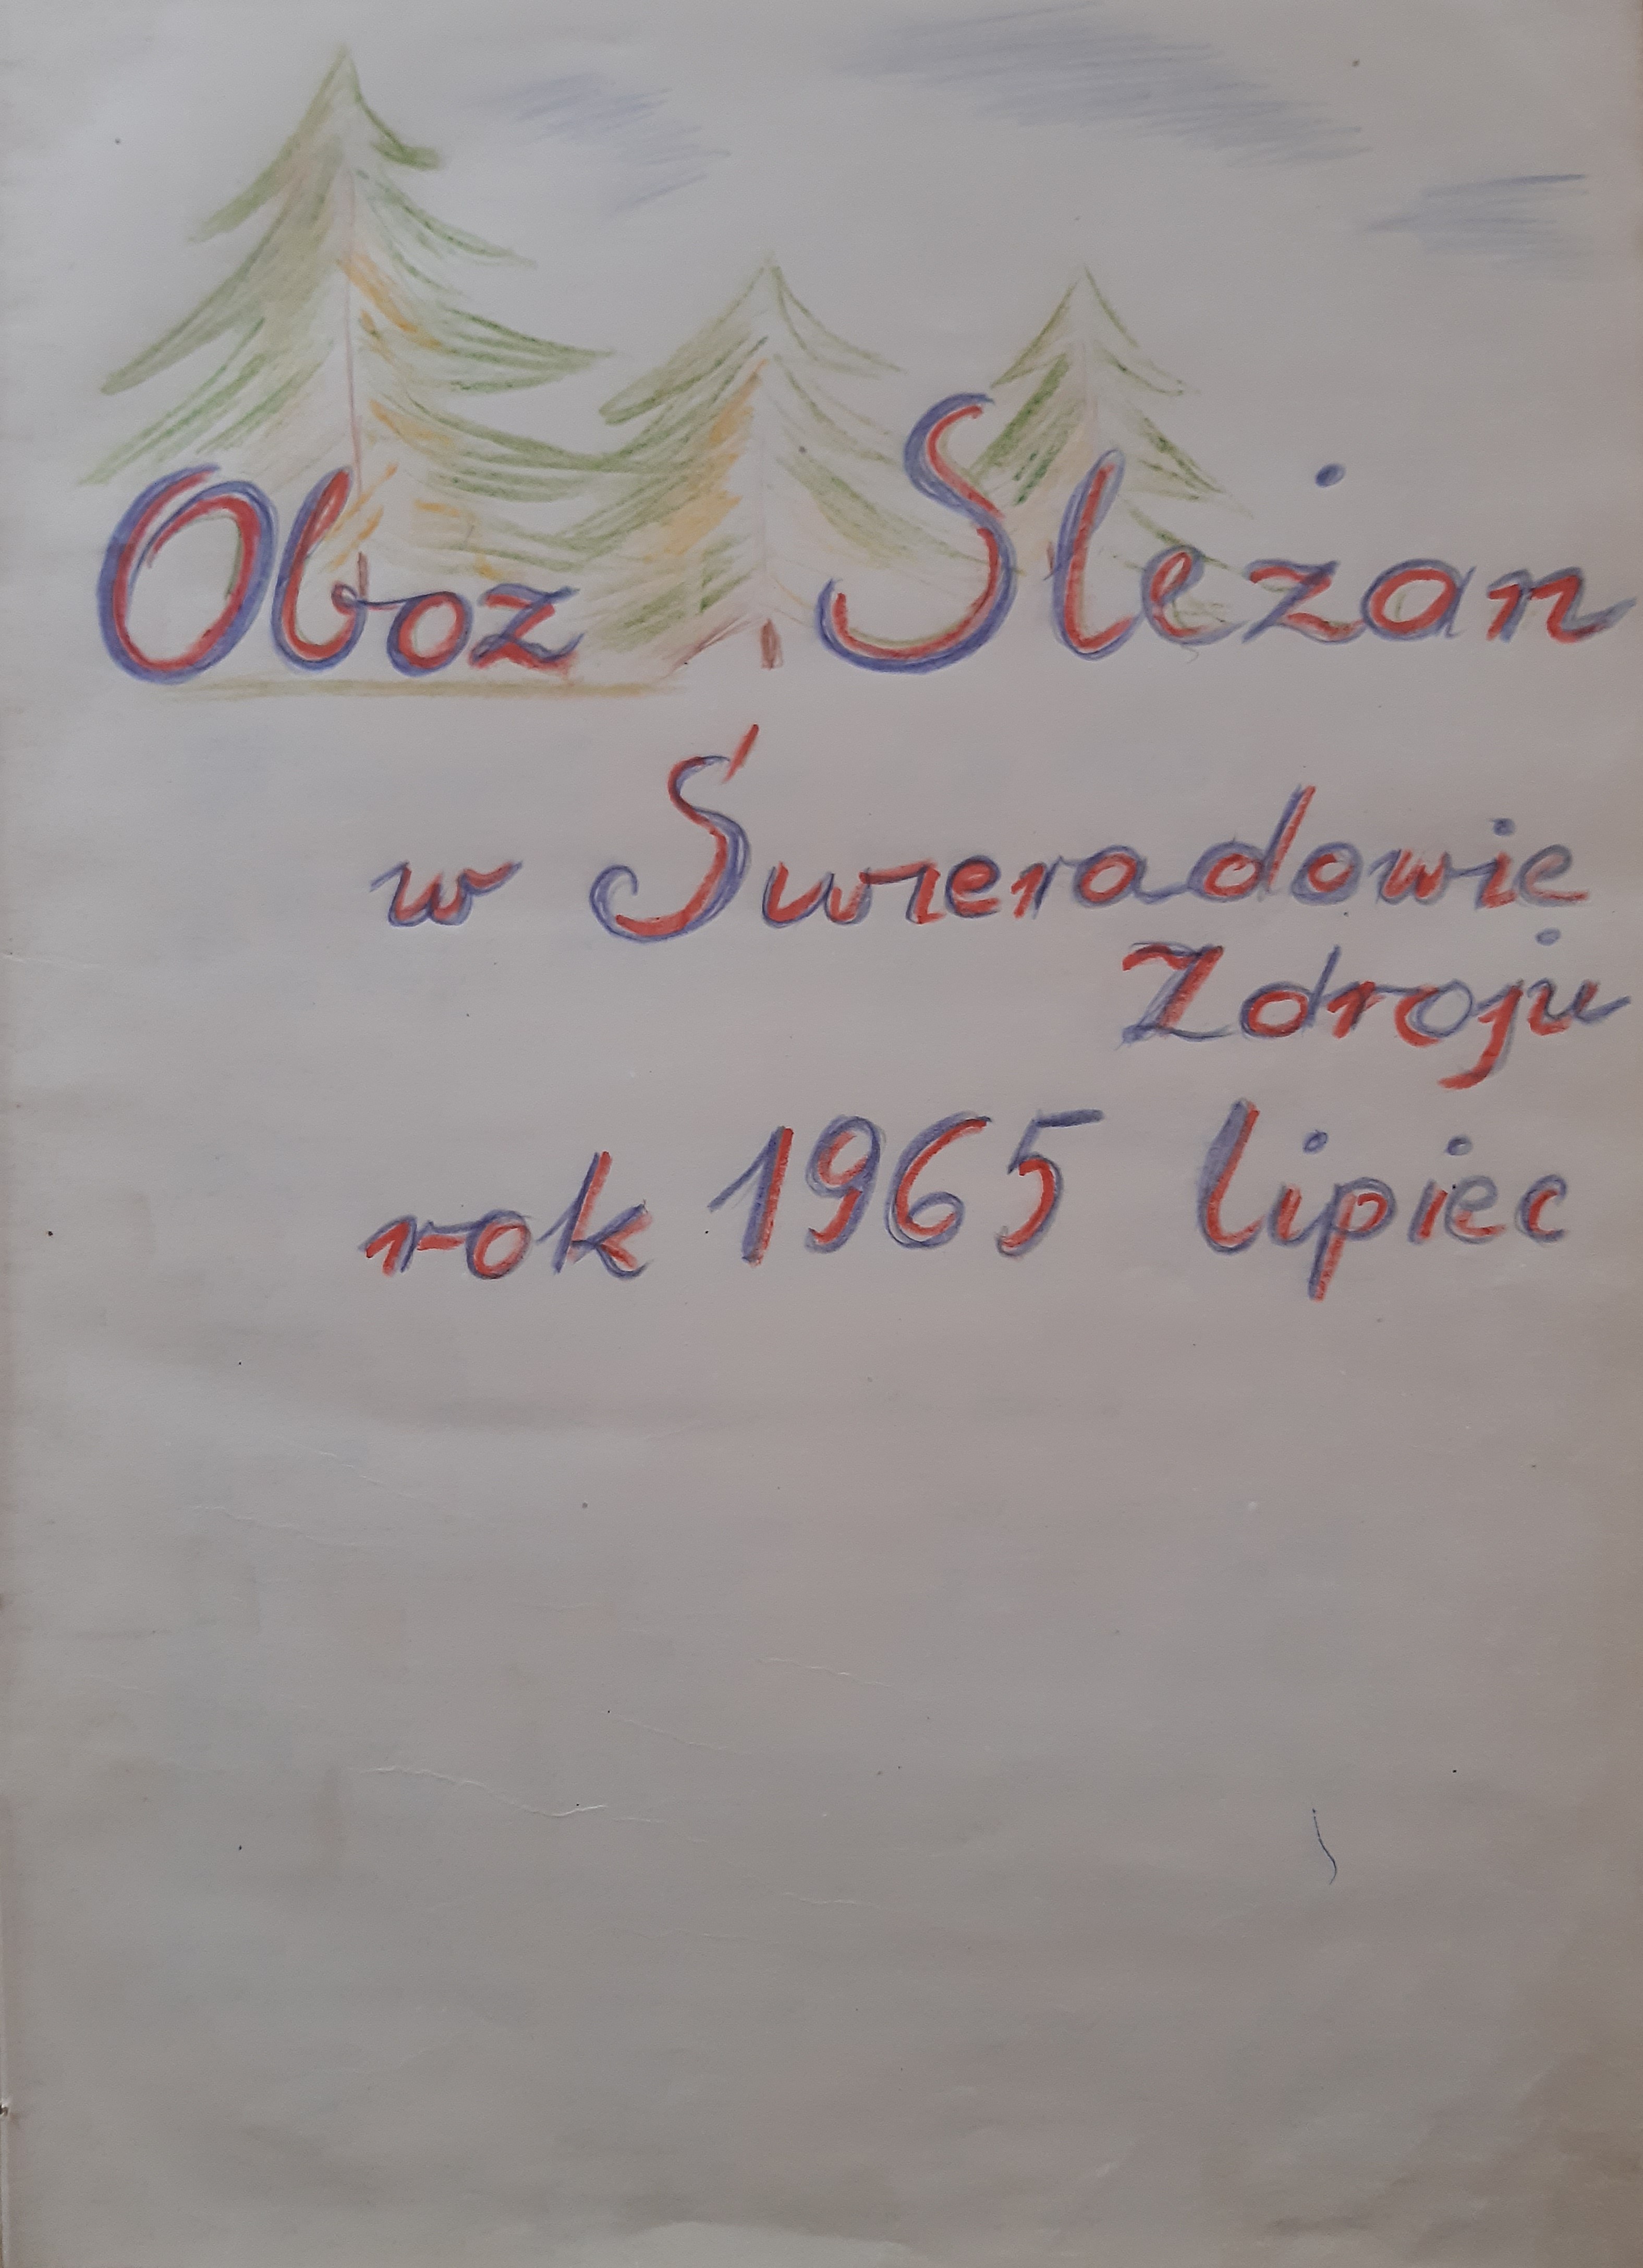 Oboz Sleżan
w Świeradowie
Zdroju
rok 1965 lipiec